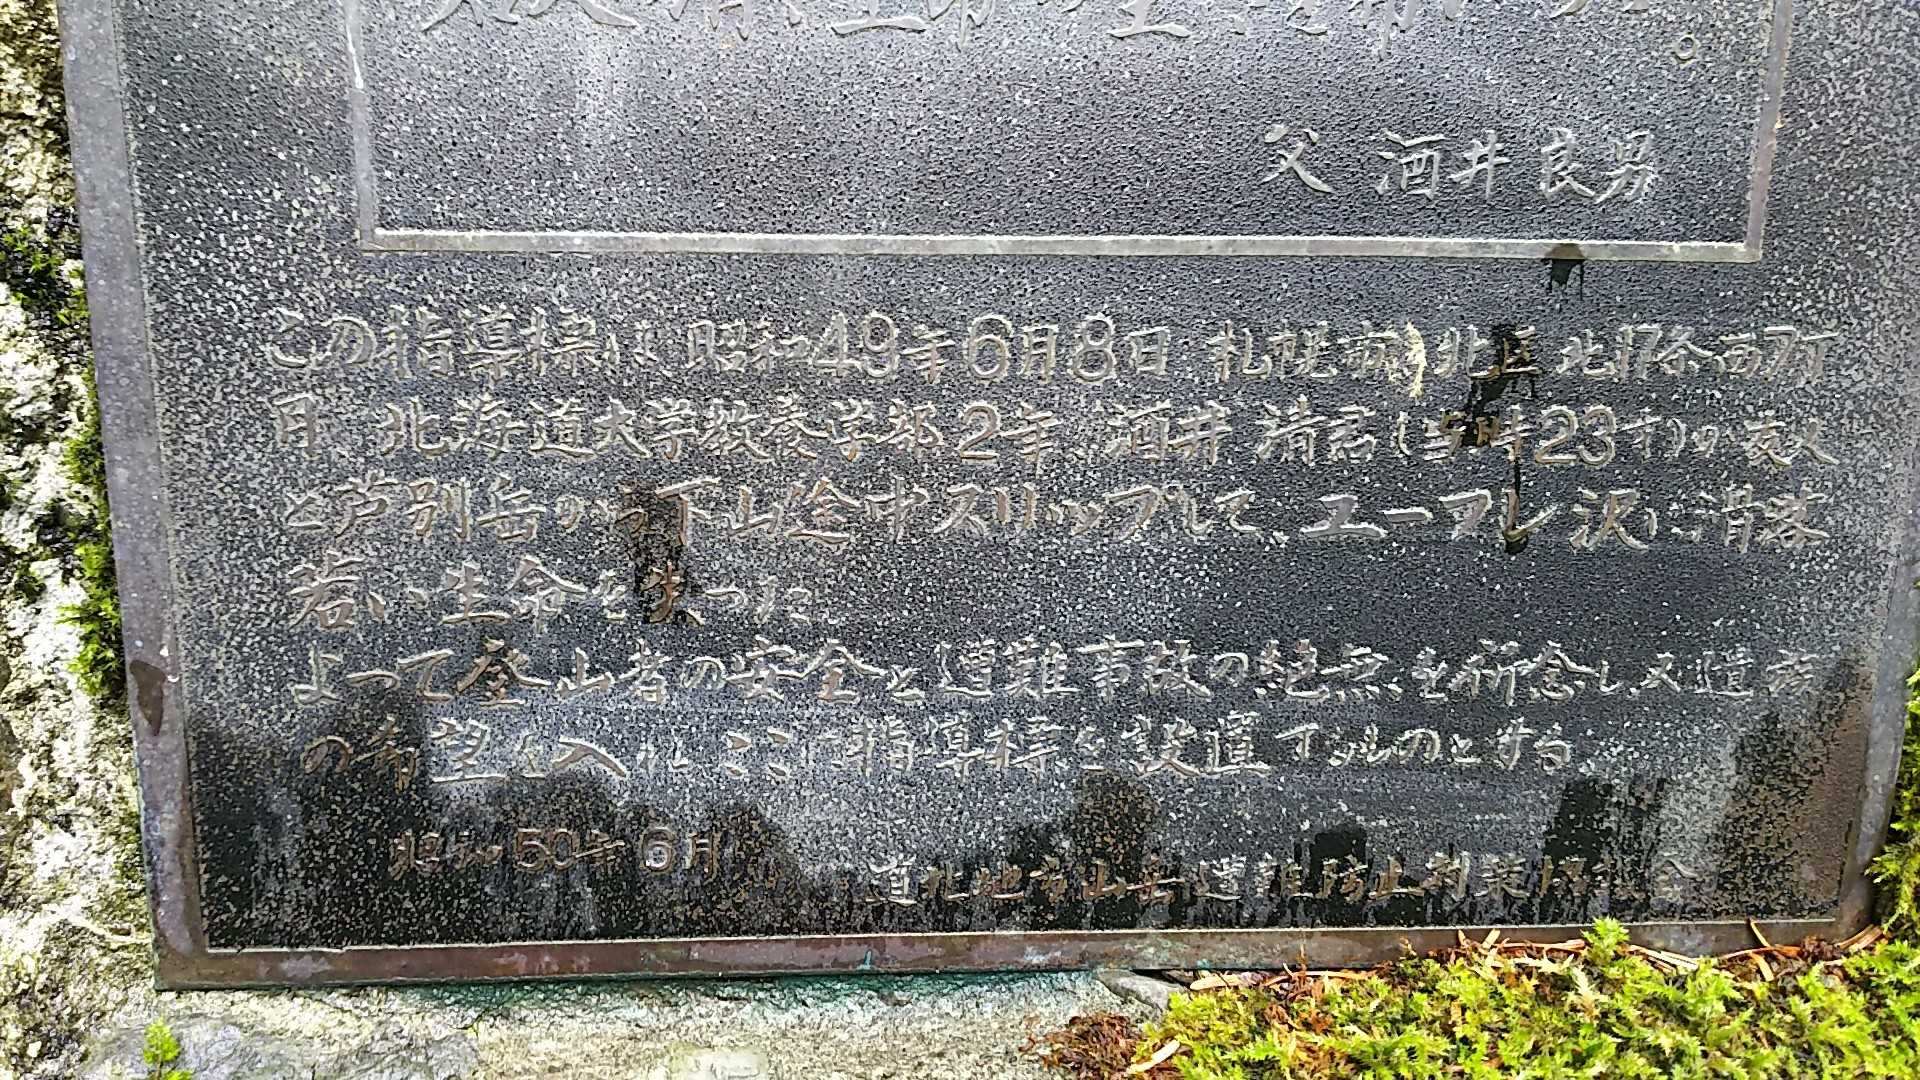 父 酒井良男
この指導標は 昭和49年6月8日 札幌市 北区 北 条西7丁
目 北海道大学教養学部2年 酒井 清君(当時23才)が友人
と芦別岳から下山途中スリップして、ユーフレ沢に滑落
若い生命を失った。
よって登山者の安全と遭難事故の絶無を祈念し、又遺族
の希望を入れ ここに指導標を設置するものとする。
昭和50年6月
道北地方山岳遭難防止対策協議会